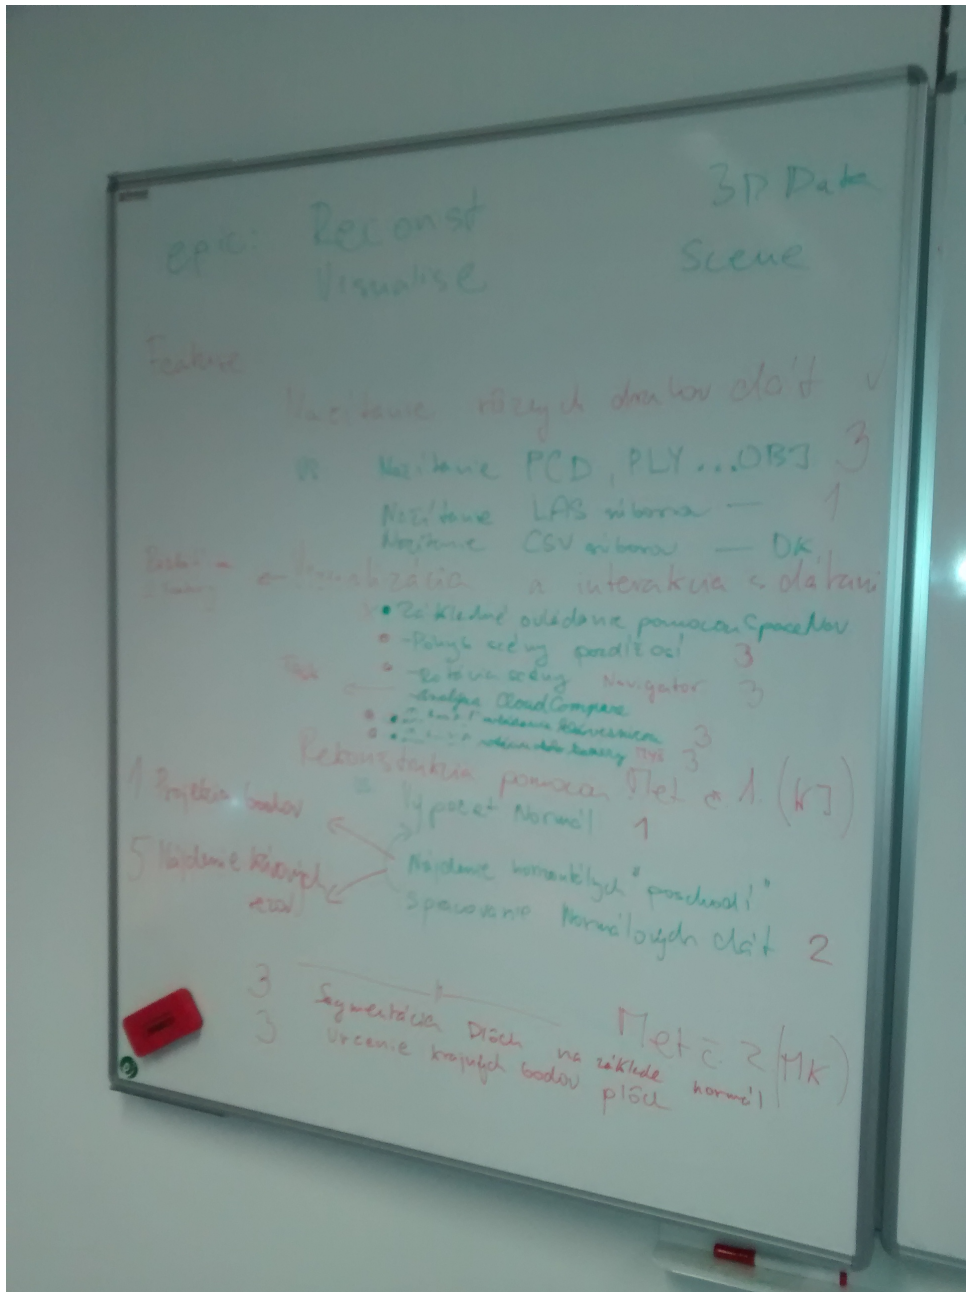 epic: Reconst 3D Data
Visualise Scene
Feature
Nacitanie rôznych druhov dát √
Nacítanie PCD, PLY...OBJ 3
Nacítanie LAS súborov — 1
Nacítanie CSV súborov — OK
← Vizualizácia a interakcia s dátami
• Základné ovládanie pomocou SpaceNav
- Pohyb scény pozdĺž osí 3
- Rotácia scény Navigator 3
- Analýza CloudCompare
3
3
Rekonštrukcia pomocou Met č 1. (KJ)
1 Projekcia bodov
Výpocet Normál 1
5 Nájdenie
Nájdenie horizontálnych "poschodí"
Spracovanie Normálových dát 2
3 Segmentácia Plôch na základe normál
3 Urcenie krajných bodov plôch
Met č 2 (MK)